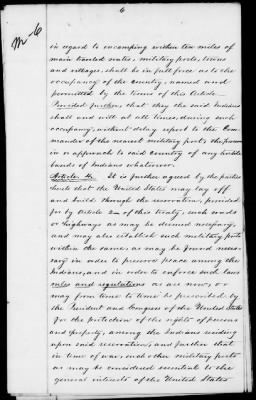 6
M-6
in regard to encamping within ten miles of
main traveled routes, military posts, towns
and villages, shall be in full force as to the
occupancy of the country, named and
permitted by the terms of this Article—
Provided further, that they the said Indians
shall and will at all times, during such
occupancy, without delay report to the Com-
mander of the nearest military post, the presence
in or approach to said Country of any hostile
bands of Indians whatsoever.
Article 4. It is further agreed by the parties
hereto that the United States may lay off
and build through the reservation, provided
for by Article 2 of this treaty, such roads
or highways as may be deemed necessary,
and may also establish such military posts
within the same, as may be found neces-
sary in order to preserve peace among the
Indians, and in order to enforce such laws
rules and regulations as are now, or
may from time to time be prescribed by
the President and Congress of the United States
for the protection of the rights of persons
and property, among the Indians residing
upon said reservation, and further that
in time of war, such other military posts
as may be considered essential to the
general interests of the United States